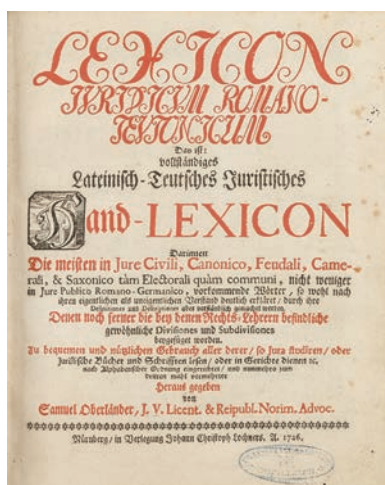 LEXICON
JURIDICUM ROMANO-
TEUTONICUM
Das ist:
vollständiges
Lateinisch-Teutsches Juristisches
Hand-LEXICON
Darinnen
Die meisten in Jure Civili, Canonico, Feudali, Came-
rali, & Saxonico tàm Electorali quàm communi, nicht weniger
in Jure Publico Romano-Germanico, vorkommende Wörter / so wohl nach
ihren eigentlichen als uneigentlichen Verstand deutlich erkläret / durch ihre
Definitiones und Descriptiones aber verständlich gemacht werden
Denen noch ferner die bey denen Rechts-Lehrern befindliche
gewöhnliche Divisiones und Subdivisiones
beygefüget worden.
Zu bequemen und nützlichen Gebrauch aller derer / so Jura studiren / oder
Juristische Bücher und Schrifften lesen / oder in Gerichte dienen ec.
nach Alphabetischer Ordnung eingerichtet / und nunmehro zum
dritten mahl vermehrter
Heraus gegeben
von
Samuel Oberländer, J. V. Licent. & Reipubl. Norim. Advoc.
Nürnberg / in Verlegung Johann Christoph Lochners. A. 1726.